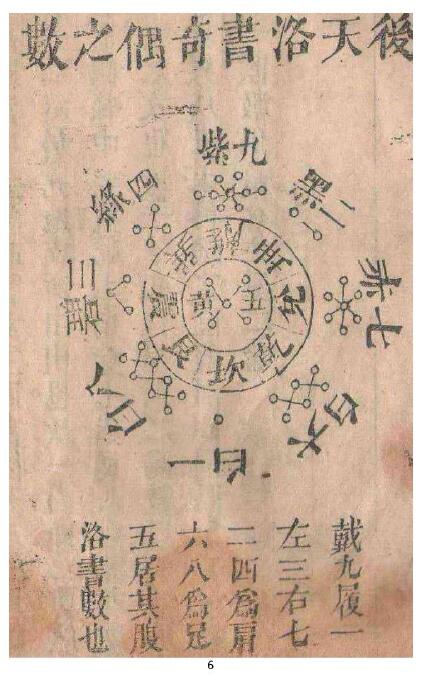 後天洛書奇偶之數
九紫
二黑
七赤
六白
一白
八白
三碧
四綠
離
坤
兌
乾
坎
艮
震
巽
五黃
戴九履一
左三右七
二四爲肩
六八爲足
五居其腹
洛書數也
6